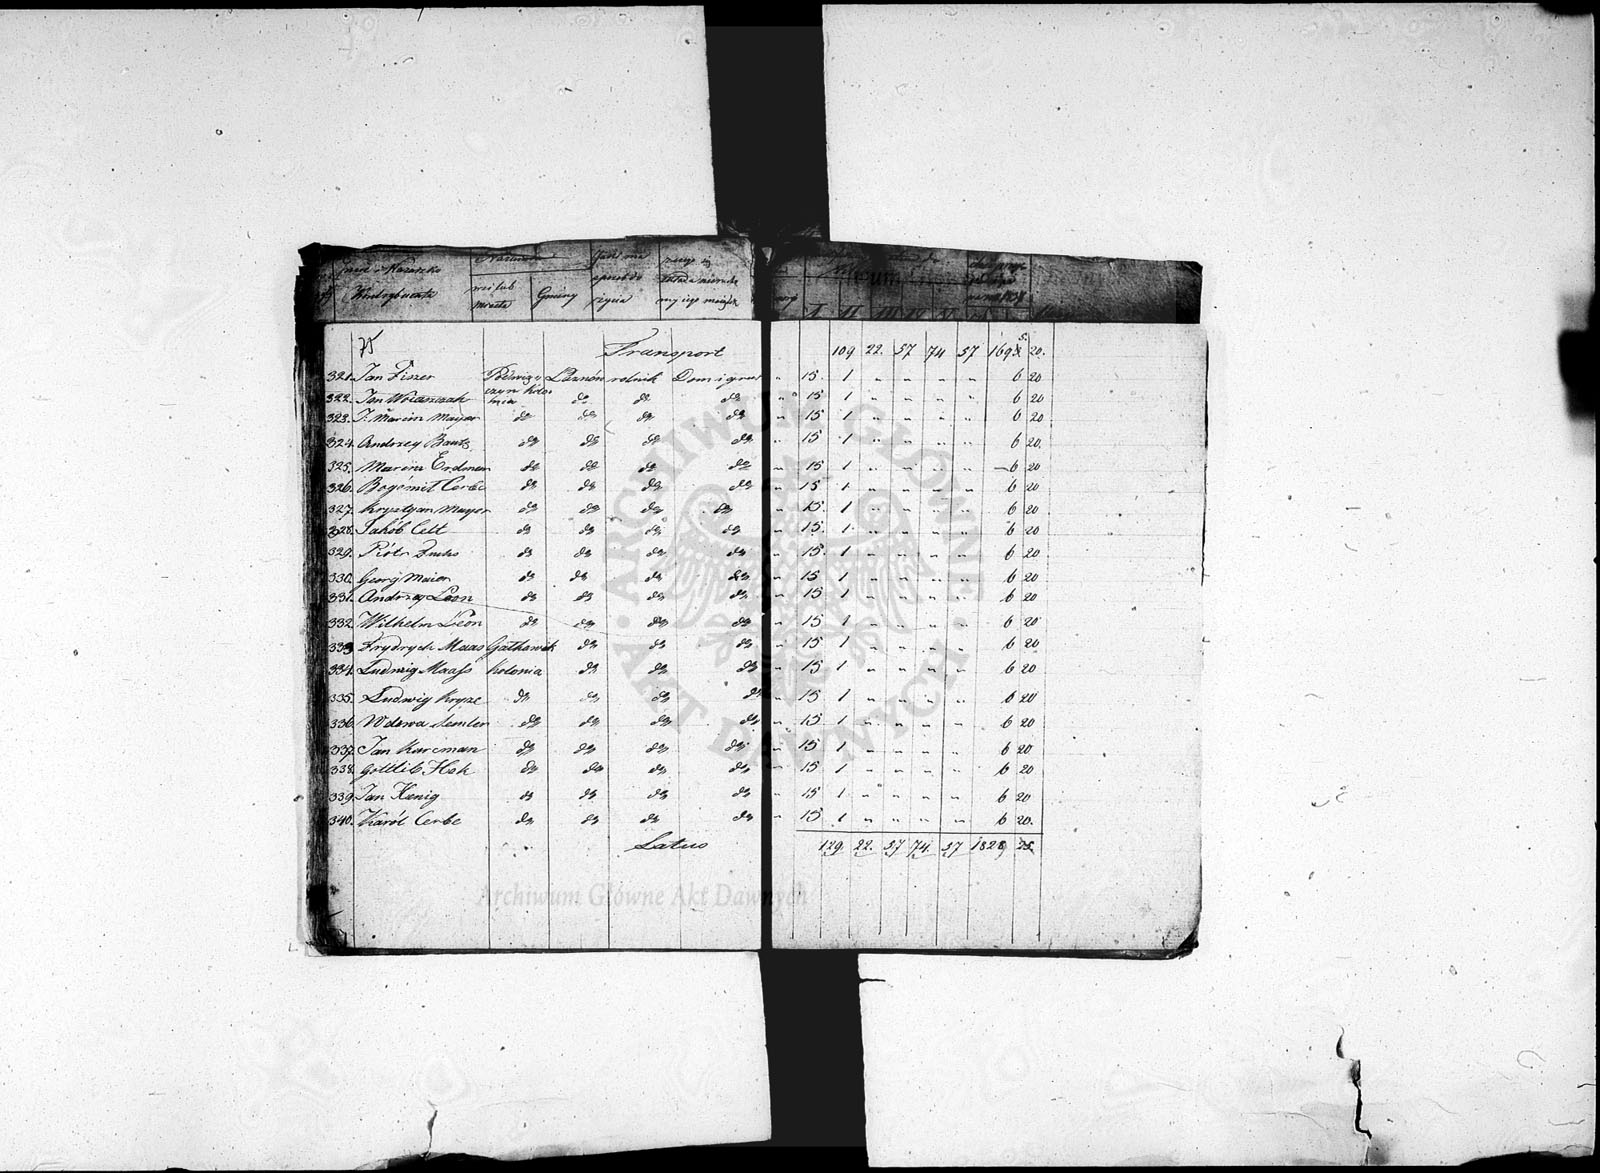 Kontrybuenta
wsi lub
miasta
Gminy
życia
I II III IV
75
Transport 109 22. 57 74 57 20.
321. Jan Fiszer rolnik Dom i grunt " 15. 1 " " " " 6 20
322. Jan do do do " 15 1 " " " " 6 20
323. J. Marcin Mayer do do do do " 15 1 " " " " 6 20
324. Andrzey Bautz do do do do " 15 1 " " " " 6 20.
325. Marcin Erdman do do do do " 15 1 " " " " 6 20
326. Bogómił Cerbe do do do do " 15 1 " " " " 6 20
327. Krystyan Mayer do do do do " 15. 1 " " " " 6 20
328. Jakób Celt do do do do " 15. 1 " " " " 6 20
329. Piótr do do do do " 15. 1 " " " " 6 20
330. Georg Maier do do do do " 15 1 " " " " 6 20
331. Andrzey Leon do do do do " 15 1 " " " " 6 20
332. Wilhelm Leon do do do do " 15 1 " " " " 6 20
333 Frydrych Maas do do do " 15 1 " " " " 6 20
334. Ludwig Maass kolonia do do do " 15 1 " " " " 6 20
335. Ludwig Kryze do do do do " 15 1 " " " " 6 20
336. Wdowa Semler do do do do " 15 1 " " " " 6 20
337. Jan Karcman do do do do " 15 1 " " " " 6 20.
338. Gottlib Hek do do do do " 15 1 " " " " 6 20
339. Jan Kenig do do do do " 15 1 " " " " 6 20
340. Karól Cerbe do do do do " 15 1 " " " " 6 20.
Latus 129 22. 57 74. 57
ARCHIWUM GŁÓWNE · AKT DAWNYCH ·
Archiwum Główne Akt Dawnych